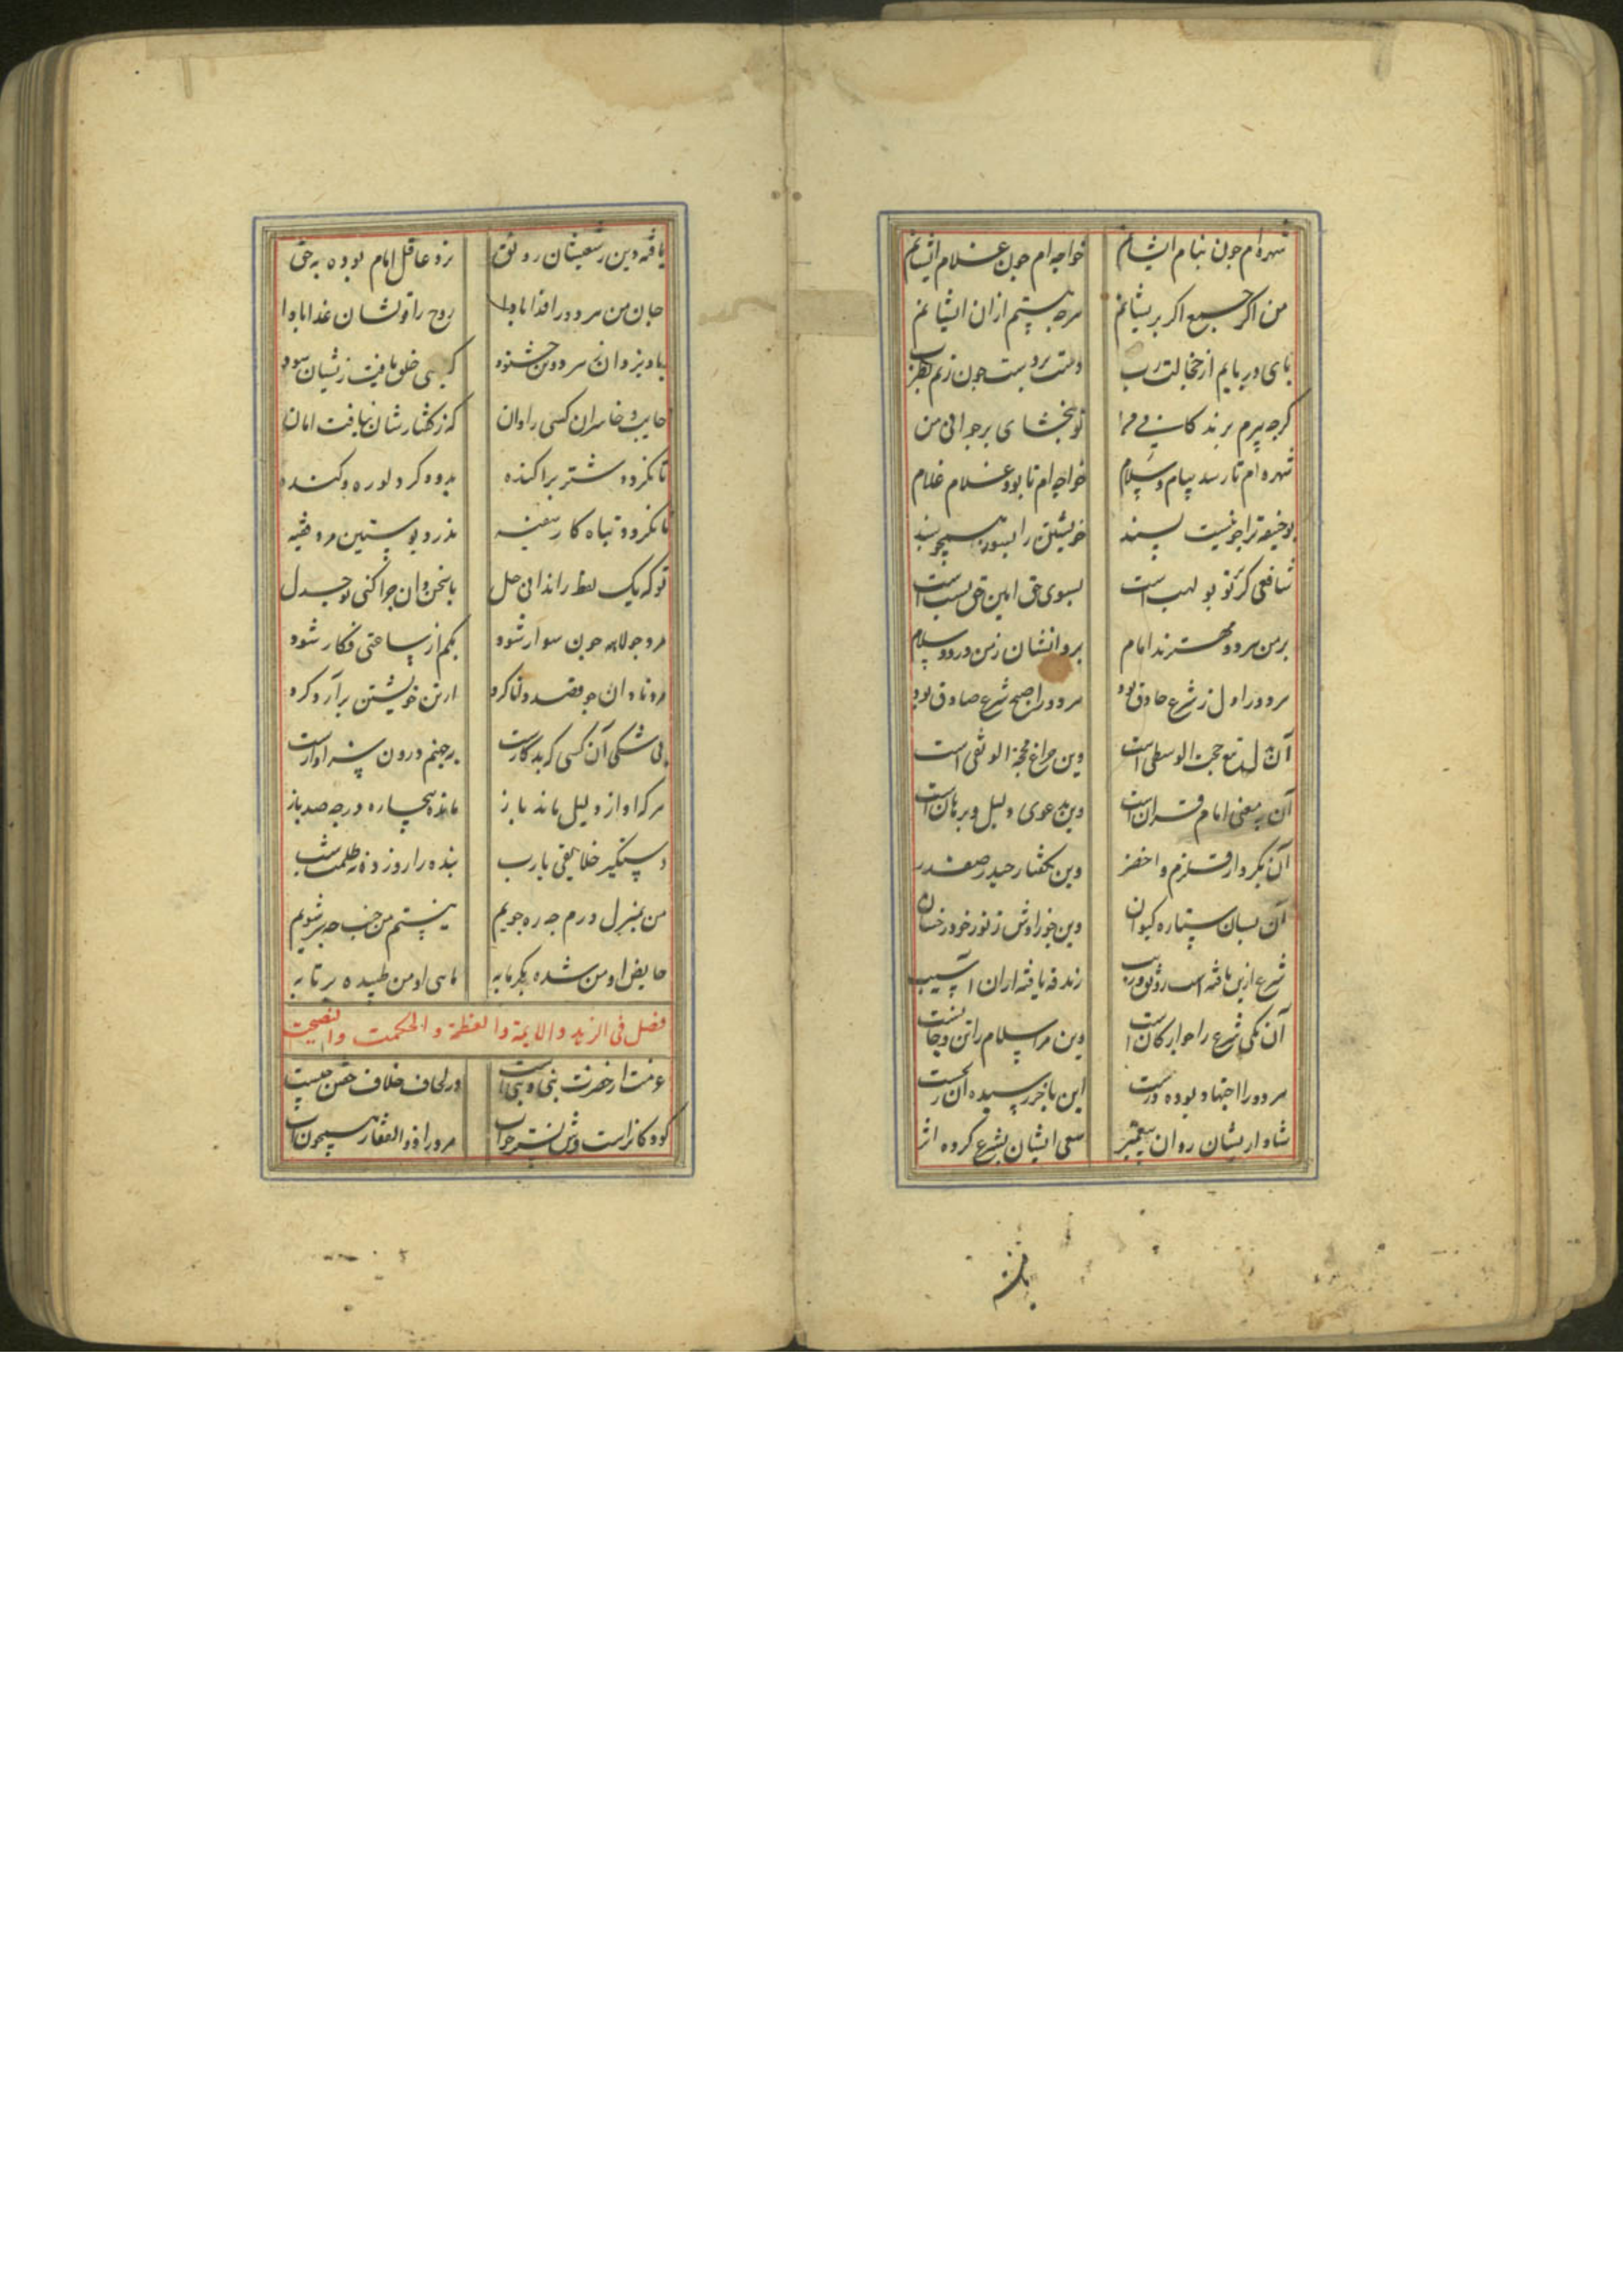 شهره‌ام چون بنام ایشانم خواجه‌ام چون غلام ایشانم
من اکر جمع اکر بریشانم هرجه هستم ازان ایشانم
بای در بایم از خجالت رب دست بر دست چون زنم بطرب
کرجه بیرم برند کانی مرا تو ببخشای بر جوانی من
شهره‌ام تا رسد بیام و سلام خواجه‌ام تا بود غلام غلام
بوحنیفه ترا جو نیست بسند خویشتن را بسوز همجو سبند
شافعی کر نزد تو بولهب است بسوی حق امین حق نسب است
بر من هر دو مهترند امام بروانشان ز من درود و سلام
هر دو در اول ز شرع حاذق بود هر دو را صبح شرع صادق بود
آن بدل تبع حجت الوسطی است وین جراغ محجة الوثقی است
آن بمعنی امام قرانست وین بدعوی دلیل و برهان است
آن بکردار قلزم و اخضر وین بکفتار حیدر صفدر
آن بسان ستاره کیوان وین جو خراوش ز نور خود رخشان
شرع ازین یافته است رونق و زیب زندقه یافته ازان آسیب
آن یکی شرع را جو ارکان است وین مر اسلام را تن و جانست
هر دو را اجتهاد بوده درست این باخر رسیده آن ز نخست
شاد ازیشان روان بیغمبر سعی ایشان بشرع کرده اثر
یافته
یافته دین ز سعیشان رونق نزد عاقل امام بوده به حق
جان من هر دو را فدا بادا روح را قوتشان غذا بادا
باد یزدان ز هر دوان خشنود که بسی خلق یافت زیشان سود
خایب و خاسران کسی را دان که ز کفتارشان نیافت امان
تا نکردد شتر براکنده بدود کرد لوره و کنده
تا نکردد تباه کار سفیه ندرد بوستین مرد فقیه
تو که یک لفظ راندانی حل با سخن‌دان چرا کنی تو جدل
مرد جولاهه چون سوار شود بکم از ساعتی فکار شود
مرد نادان چو قصد دانا کرد از تن خویشتن برآرد کرد
بی شکی آن کسی که بدکارست به جهنم درون سزاوارست
هرکه او از دلیل ماند باز مانده بیچاره در چه صد باز
دستکیر خلایقی یارب بنده را روز ده ز ظلمت شب
من بمنزل درم چه ره جویم نیستم من جنب چه سر شویم
حایض او من شده بکرمابه ماهی او من طبیده بر تابه
فصل فی الزهد والایمة والعظة و الحکمت والنصیحت
عزمت از حضرت بنی و بنی‌ است در لحاف خلاف خفتن چیست
کودکانراست وش نشتر خواب مرد را ذوالفقار همچون آب